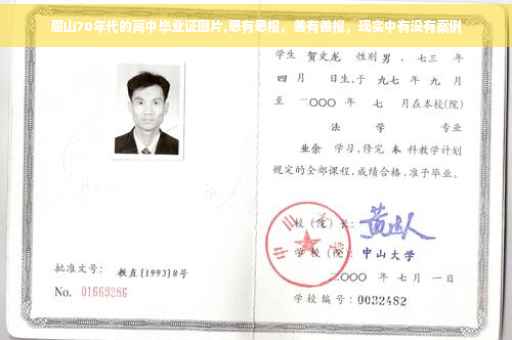 眉山70年代的高中毕业证图片,恶有恶报，善有善报，现实中有没有案例
学生 贺文龙 性别 男 、七三 年
四 月 日生,于 九七 年 九 月
至 二〇〇〇 年 七 月在本校(院)
法 学 专业
业余 学习,修完 本 科教学计划
规定的全部课程,成绩合格,准予毕业。
校（院）长:
学校（院）: 中山大学
二〇〇〇 年 七 月 一 日
学校编号: 0032482
批准文号: 教直(1993)8号
No. 01669286
中山大